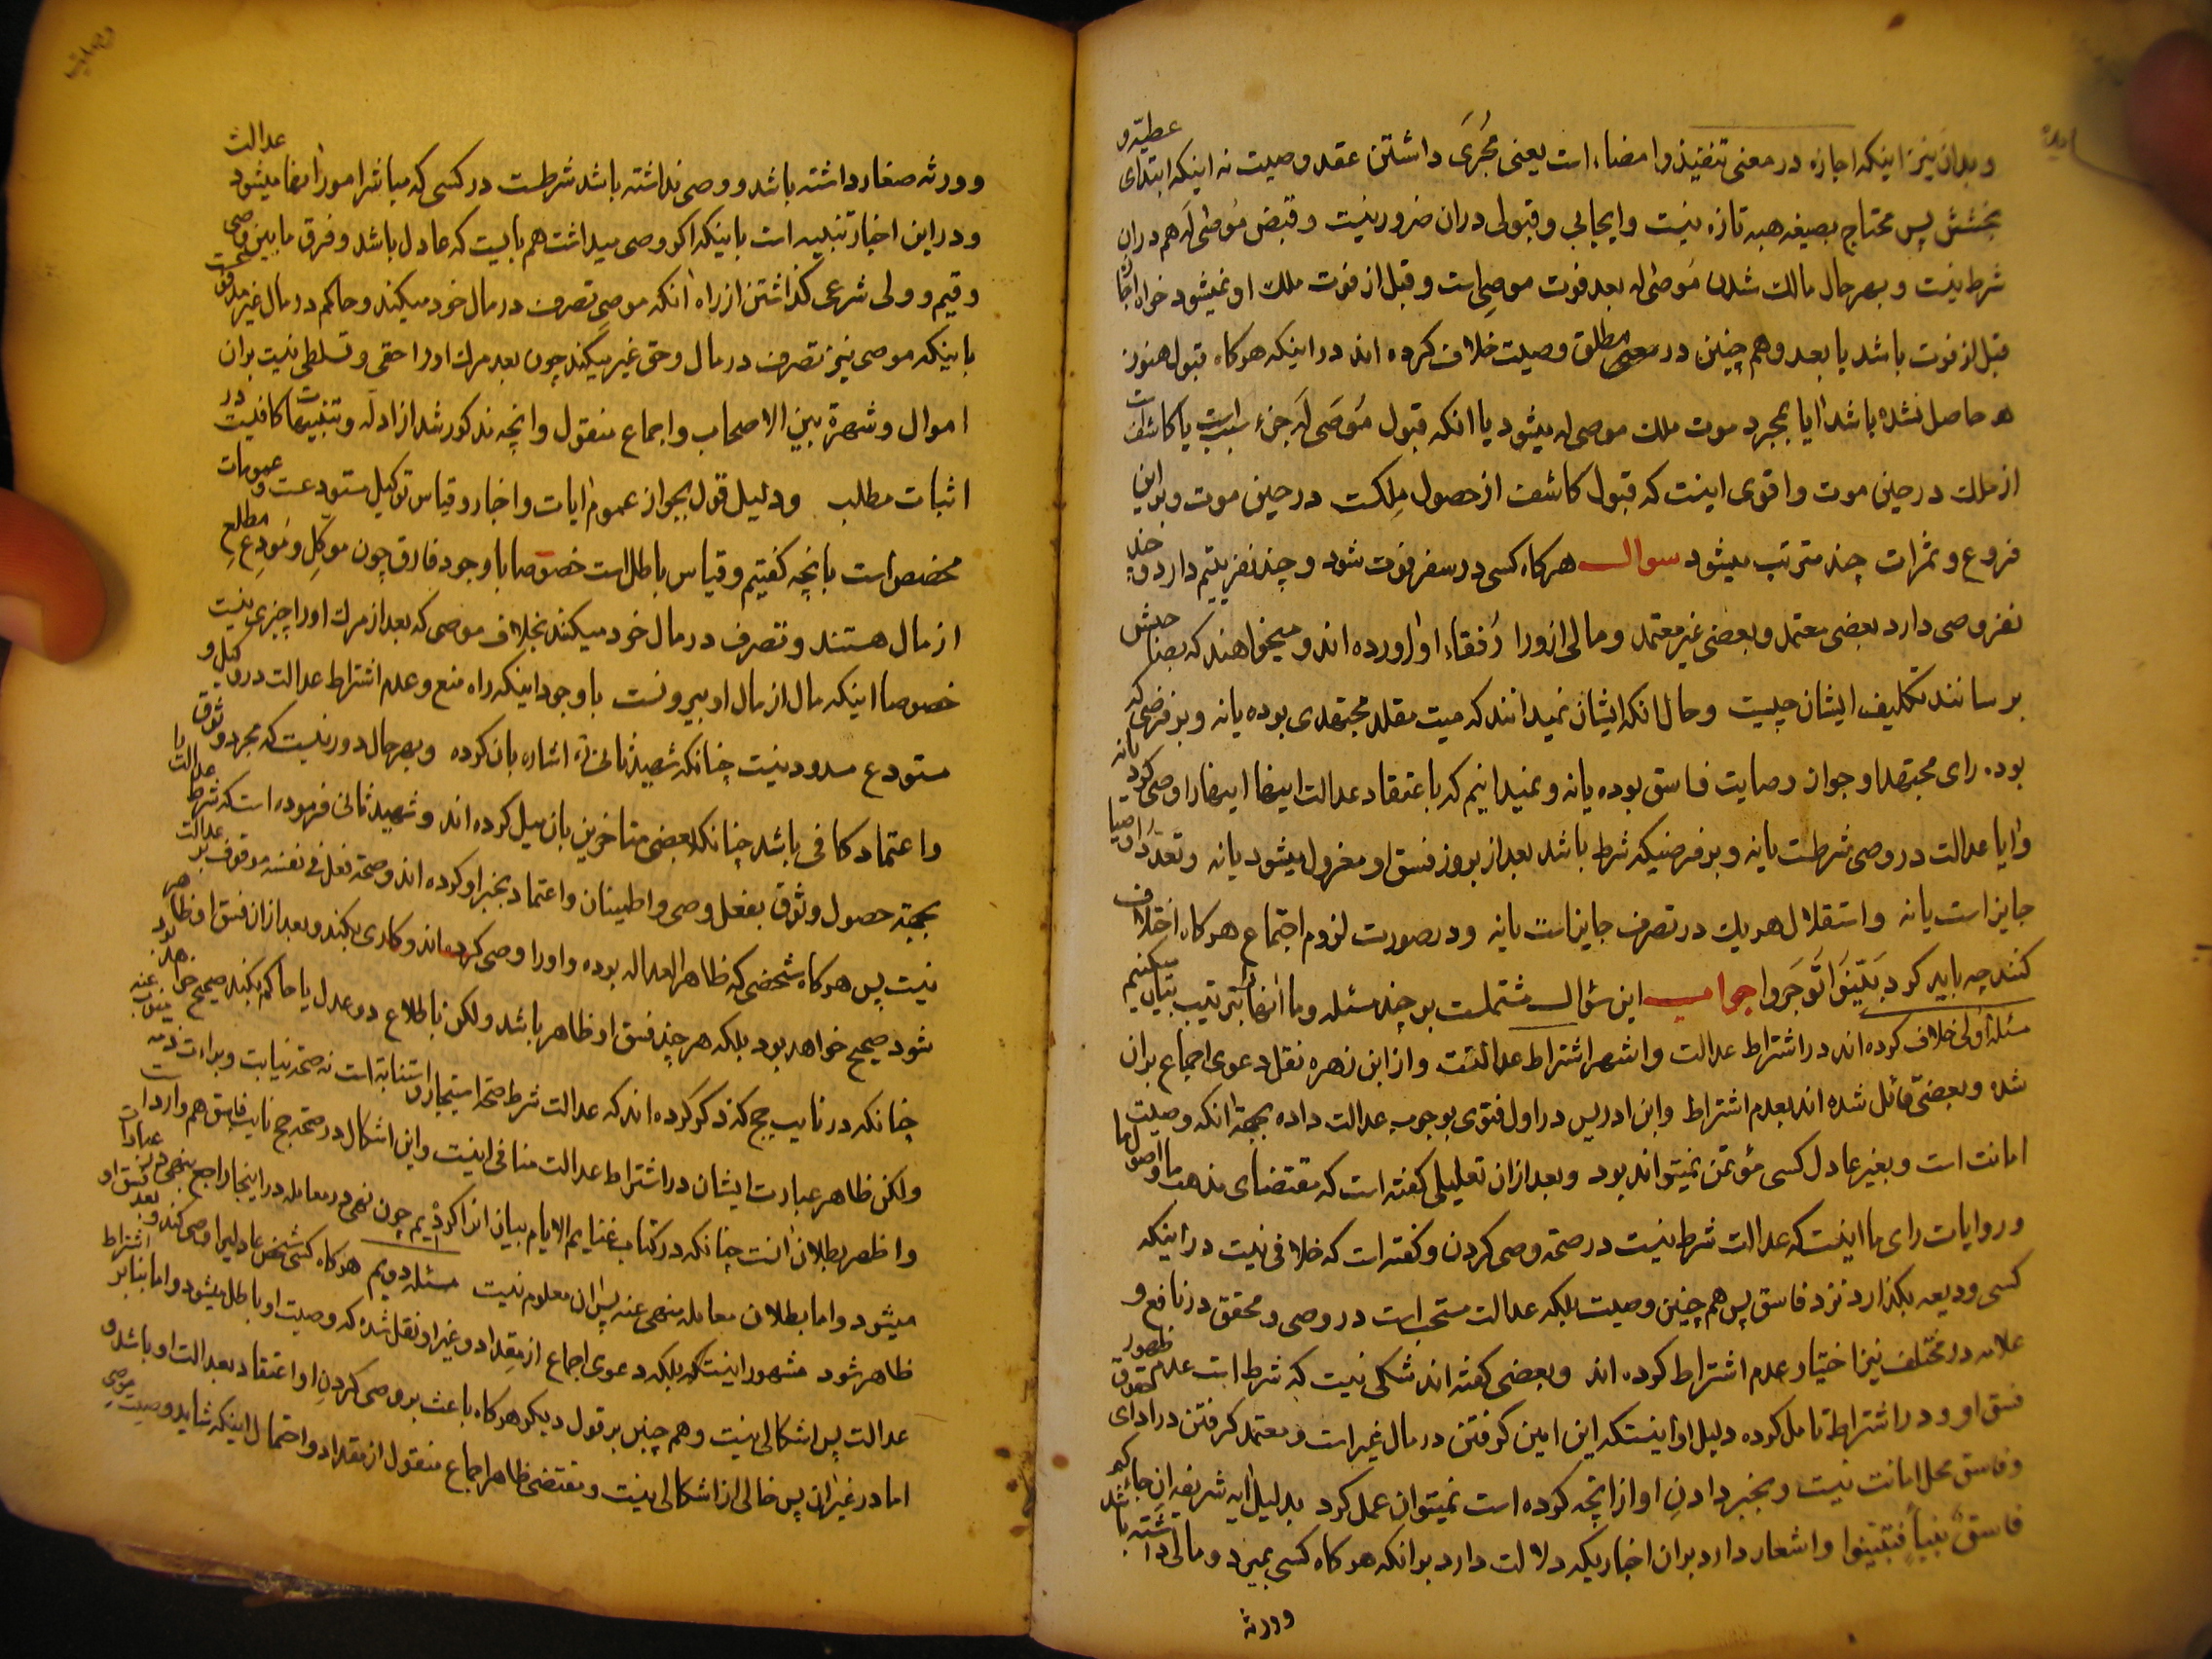 وبدان نیز اینکه اجازه در معنی تنفیذ و امضاء است یعنی مُجرَی داشتن عقد وصیت نه اینکه ابتدای عطیّه و
بخشش پس محتاج بصیغه هبه تازه نیست و ایجابی و قبولی در ان ضرور نیست و قبض مُوصٰی لَه هم در ان
شرط نیست و بهر حال مالک شدن مُوصٰی له بعد فوت موصِی است و قبل از فوت ملک او نمیشود خواه اجازه
قبل از فوت باشد یا بعد و هم چنین در مطلق وصیت خلاف کرده اند در اینکه هرکاه قبول هنوز
هم حاصل نشده باشد ایا بمجرد موت ملک موصی له میشود یا انکه قبول مُوصَی لَه جزءِ سبب است یا کاشفست
از ملک در حین موت و اقوی اینست که قبول کاشف از حصول مِلکست در حین موت و بر این
فروع و ثمرات چند مترتب میشود سوال هرکاه کسی در سفر فوت شود و چند نفر یتیم دارد و چند
نفر وصی دارد بعضی معتمد و بعضی غیر معتمد و مالی از او را رُفقاء او اورده اند و میخواهند که بصاحبش
برسانند تکلیف ایشان چیست و حال انکه ایشان نمیدانند که میت مقلد مجتهدی بوده یا نه و بر فرضی که
بوده رای مجتهد او جواز وصایت فاسق بوده یا نه و نمیدانیم که باعتقاد عدالت اینها اینها را وصی کرد یا نه
و ایا عدالت در وصی شرطست یا نه و بر فرضیکه شرط باشد بعد از بروز فسق او معزول میشود یا نه و تعدّد اوصیا
جایز است یا نه و استقلال هر یک در تصرف جایز است یا نه و در صورت لزوم اجتماع هرکاه اختلاف
کنند چه باید کرد بَیّنوَا تُوجَروا جواب این سؤال مشتملست بر چند مسئله و ما انها را بترتیب بیان میکنیم
مسئله اولی خلاف کرده اند در اشتراط عدالت و اشهر اشتراط عدالتست و از ابن زهره نقل دعوی اجماع بر ان
شده و بعضی قائل شده اند بعدم اشتراط و ابن ادریس در اول فتوی بوجوب عدالت داده بجهة انکه وصیت
امانت است و بغیر عادل کسی مؤتمن نمیتواند بود و بعد از ان تعلیلی کفته است که مقتضای مذهب ما و اصول ما
و روایات رای ما اینست که عدالت شرط نیست در صحة وصی کردن و کفته است که خلافی نیست در اینکه
کسی ودیعه بکذارد نزد فاسق پس هم چنین وصیت بلکه عدالت مستحب است در وصی و محقق در نافع و
علامه در مختلف نیز اختیار عدم اشتراط کرده اند و بعضی کفته اند شکی نیست که شرط است عدم ظهور
فسق او و در اشتراط تامل کرده دلیل او اینستکه این امین کرفتن در مال غیر است و معتمد کرفتن در ادای حقوق
و فاسق محل امانت نیست و بخبر دادنِ او از انچه کرده است نمیتوان عمل کرد بدلیل ایه شریفه ان جائکم
فاسقٌ بنباٍ فتبیّنوا و اشعار دارد بر ان اخباریکه دلالت دارد بر انکه هرکاه کسی بمیرد و مالی داشته باشد
وورثه
وصیت
و ورثه صغار داشته باشد و وصی نداشته باشد شرطست در کسی که مباشر امور انها میشود عدالت
و در این اخبار تنبیه است باینکه اکر وصی میداشت هم بایست که عادل باشد و فرق ما بین وصی
و قیم و ولی شرعی کذاشتن از راه انکه موصی تصرف در مال خود میکند و حاکم در مال غیر مدفوعست
باینکه موصی نیز تصرف در مال و حق غیر میکند چون بعد مرک او را حقی و تسلطی نیست بر ان
اموال و شهرة بین الاصحاب و اجماع منقول و انچه مذکور شد از ادله و تنبیهات کافیست در
اثبات مطلب و دلیل قول بجواز عموم ایات و اخبار و قیاس توکیل مستودعست و عمومات
مخصص است بانچه کفتیم و قیاس باطل است خصوصا با وجود فارق چون موکِل و مُودِع مطلعِ
از مال هستند و تصرف در مال خود میکنند بخلاف موصی که بعد از مرک او را چیزی نیست
خصوصا اینکه مال از مال او بیرونست با وجود اینکه راه منع و عدم اشتراط عدالت در وکیل و
مستودع مسدود نیست چنانکه شهید ثانی ره اشاره بان کرده و بهر حال دور نیست که مجرد وثوق
و اعتماد کافی باشد چنانکه بعضی متاخرین بان میل کرده اند و شهید ثانی فرموده است که شرط عدالت
بجهة حصول وثوق بفعل وصی و اطمینان و اعتماد بخبر او کرده اند و صحة فعل فی نفسه موقوف بر عدالت
نیست پس هرکاه شخصی که ظاهر العداله بوده و او را وصی کرده اند و کاری بکند و بعد از ان فسق او ظاهر
شود صحیح خواهد بود بلکه هر چند فسق او ظاهر باشد ولکن باطلاع دو عدل یا حاکم بکند صحیح خواهد بود
چنانکه در نایب حج کند ذکر کرده اند که عدالت شرط صحة استیجار و استنابة است نه صحة نیابت و براءت ذمه منوب عنه
ولکن ظاهر عبارت ایشان در اشتراط عدالت منافی اینست و این اشکال در صحة حج نایب فاسق هم وارد است
و اظهر بطلان انست چنانکه در کتاب غنایم الایام بیان انرا کردیم چون نهی در معامله در اینجا راجع بنهی در عبادات
میشود و اما بطلان معامله منهی عنه پس ان معلوم نیست مسئله دویم هرکاه کسی شخص عادلیرا وصی کند و بعد فسق او
ظاهر شود مشهور اینستکه بلکه دعوی اجماع از مقداد و غیر او نقل شده که وصیت او باطل میشود و اما بنا بر اشتراط
عدالت پس اشکالی نیست و هم چنین بر قول دیکر هرکاه باعث بر وصی کردنِ او اعتقاد بعدالت او باشد و
اما در غیر ان پس خالی از اشکالی نیست و مقتضی ظاهر اجماع منقول از مقداد و احتمال اینکه شاید وصیت موصی